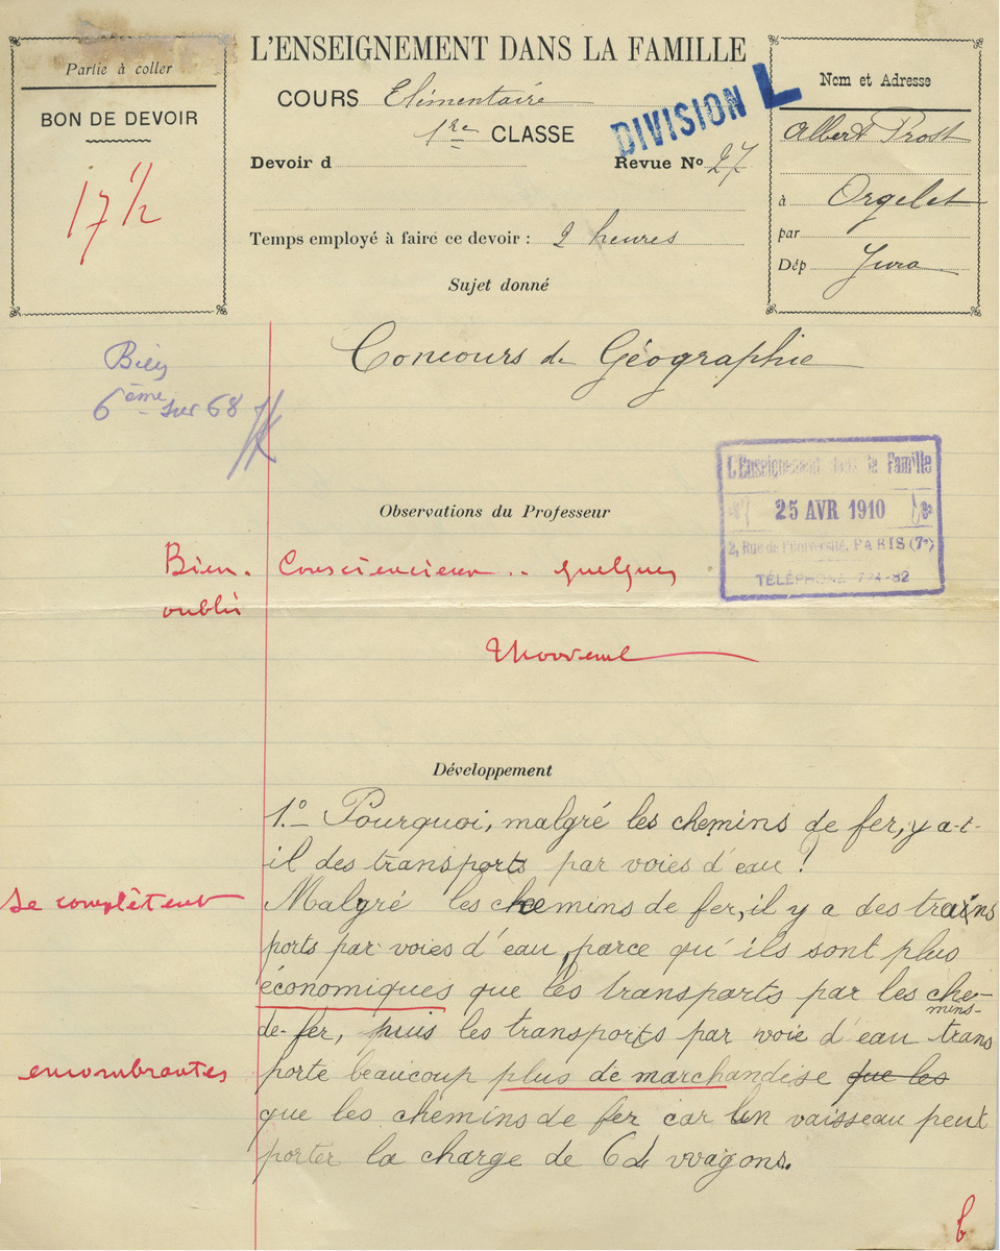 Partie à coller
BON DE DEVOIR
17 1/2
L'ENSEIGNEMENT DANS LA FAMILLE
COURS Elémentaire
1re CLASSE
DIVISION L
Devoir d
Revue No 27
Temps employé à faire ce devoir : 2 heures
Sujet donné
Nom et Adresse
Albert Prost
à Orgelet
par
Dép Jura
Concours de Géographie
Bien
6ème sur 68
L'Enseignement dans la Famille
25 AVR 1910
2, Rue de l'Université, PARIS (7e)
TÉLÉPHONE 774-82
Observations du Professeur
Bien. Consciencieux .. quelques
oublis
Développement
1.º Pourquoi, malgré les chemins de fer, y a-t-
il des transports par voies d'eau ?
se complètent
Malgré les chemins de fer, il y a des trains
ports par voies d'eau, parce qu'ils sont plus
économiques que les transports par les che-
mins-
de-fer, puis les transports par voie d'eau trans
encombrantes
porte beaucoup plus de marchandise que les
que les chemins de fer car un vaisseau peut
porter la charge de 6 wagons.
b